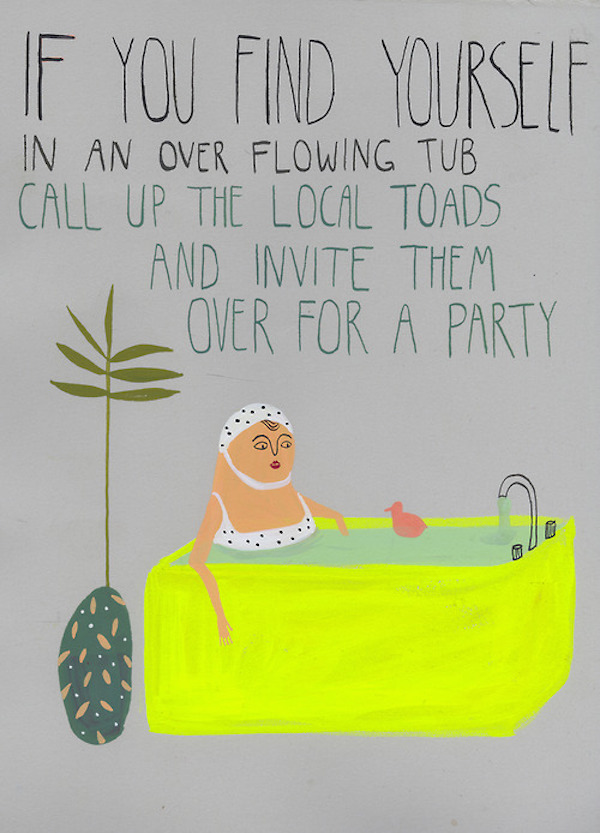 IF YOU FIND YOURSELF
IN AN OVER FLOWING TUB
CALL UP THE LOCAL TOADS
AND INVITE THEM
OVER FOR A PARTY